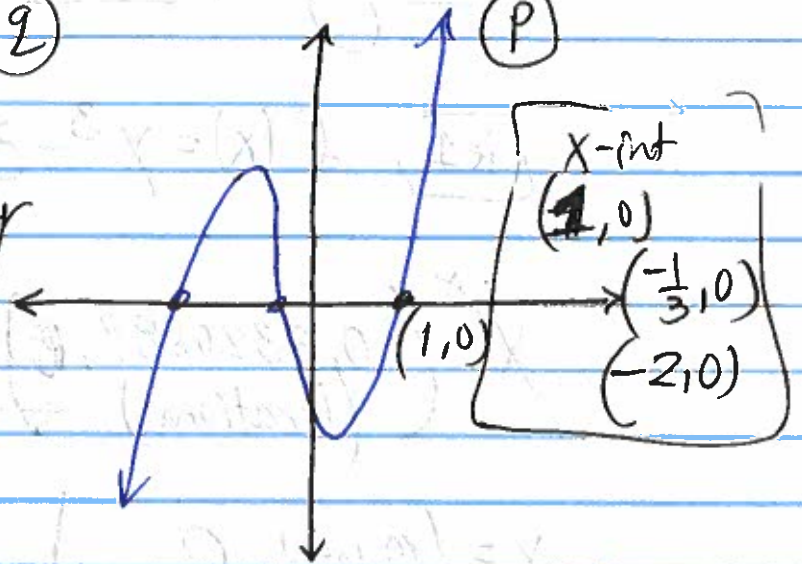 q
p
x-int
(1,0)
(-1/3,0)
(-2,0)
(1,0)